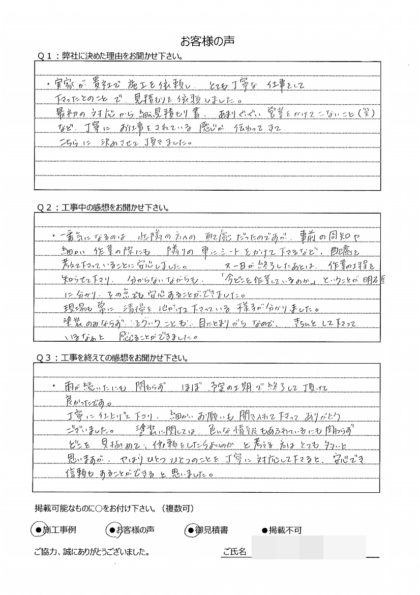 お客様の声
Q1：弊社に決めた理由をお聞かせ下さい。
・実家が貴社で施工を依頼し、とても丁寧な仕事をして
下さったとのことで見積もりを依頼しました。
最初の対応から細い見積もり書、あまりぐいぐい営業をかけてこないこと(笑)
など、丁寧にお仕事をされている感じが伝わってきて
こちらに決めさせて頂きました。
Q2：工事中の感想をお聞かせ下さい。
・一番気になるのは近隣の方への配慮だったのですが、事前の周知や
細かい作業の際にも隣りの車にシートをかけて下さるなど、配慮を
考えて下さっていることに安心しました。 又一日が終了したあとは、作業の工程を
知らせて下さり、分からないながらも、「今どこを作業しているのか」ということが明確
に分かり、その点でも安心することができました。
現場も常に清潔を心がけて下さっている様子が分かりました。
塗装のみならず、どういうことも、目に止まりがちなので、きちんとして下さって
いるなぁと感じることができました。
Q3：工事を終えての感想をお聞かせ下さい。
・雨が続いたにも関わらず、ほぼ予定の工期で終了して頂いて
良かったです。
丁寧に仕上げて下さり、細かいお願いも聞き入れて下さってありがとう
ございました。 塗装に関しては、良くない情報もあふれているにも関わらず
どこを見極めて、依頼をしたらよいのかと考える方はとても多いと
思いますが、やはりひとつひとつのことを丁寧に対応して下さると、安心でき
信頼もすることができると思いました。
掲載可能なものに○をお付け下さい。（複数可）
●施工事例 ●お客様の声 ●御見積書 ●掲載不可
ご協力、誠にありがとうございました。 ご氏名